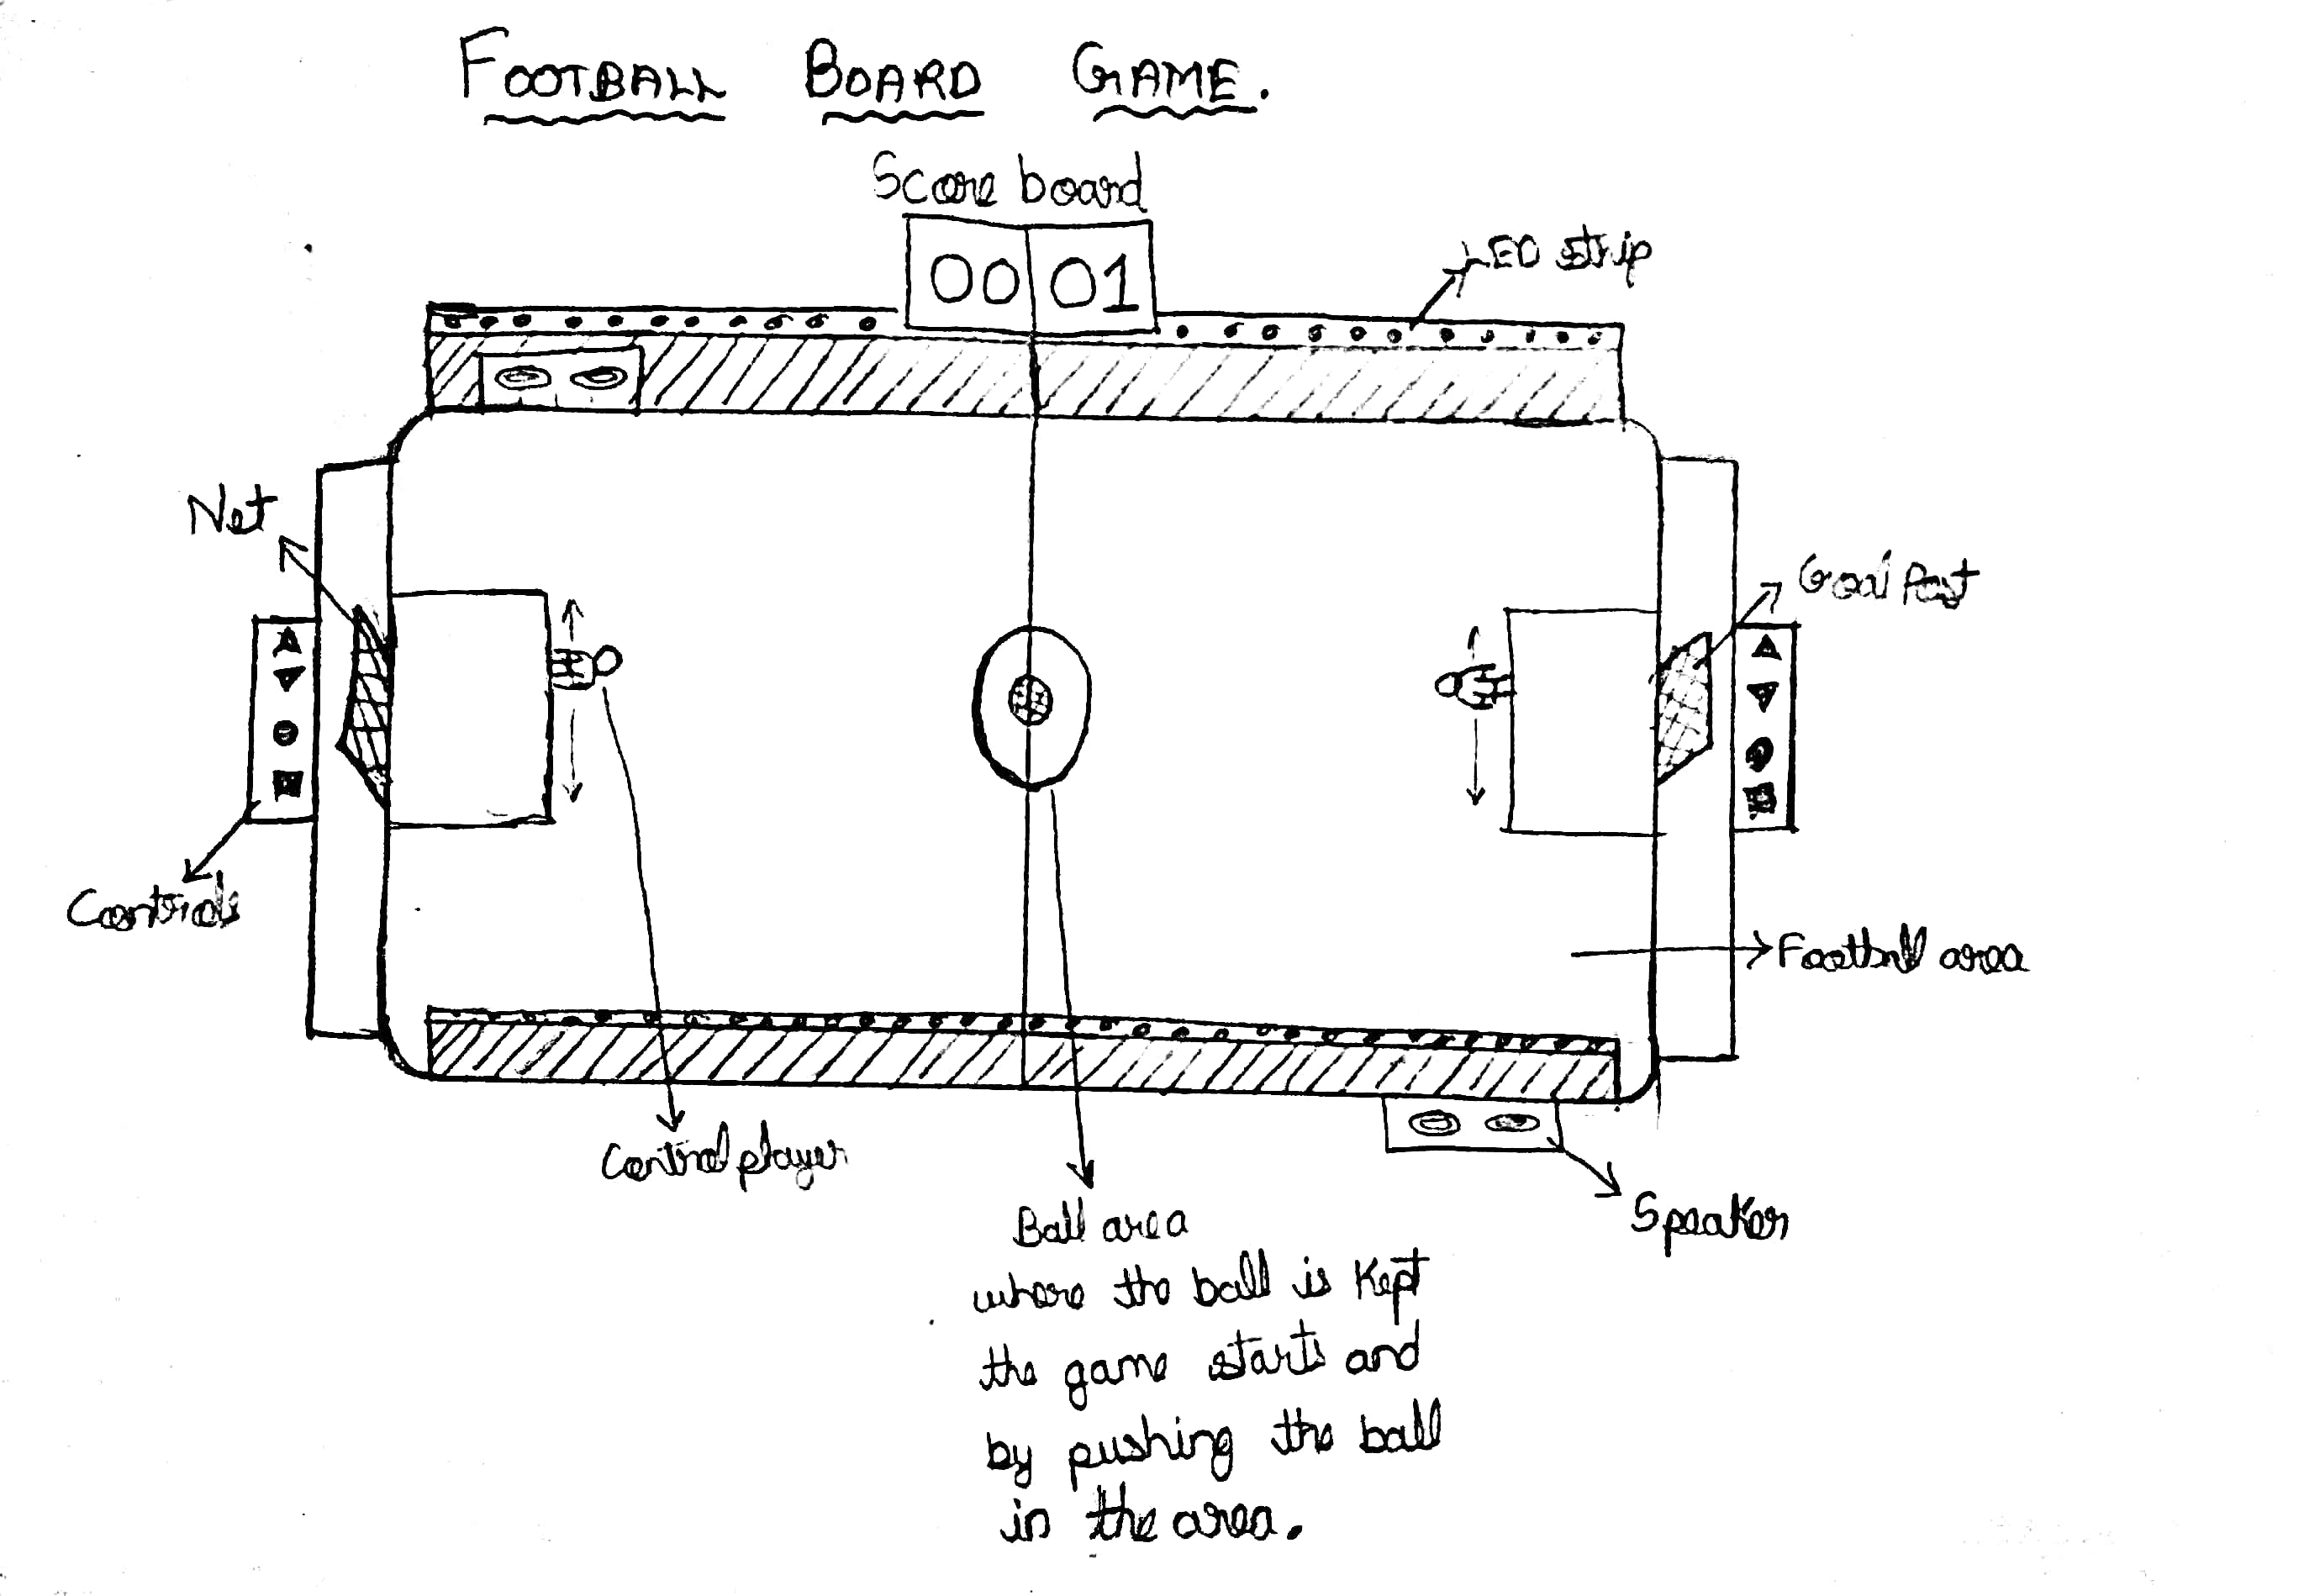 FOOTBALL BOARD GAME.
Score board
00 01
LED strip
Net
Goal Post
Controls
Football area
Control player
Speaker
Ball area
where the ball is kept
the game starts and
by pushing the ball
in the area.